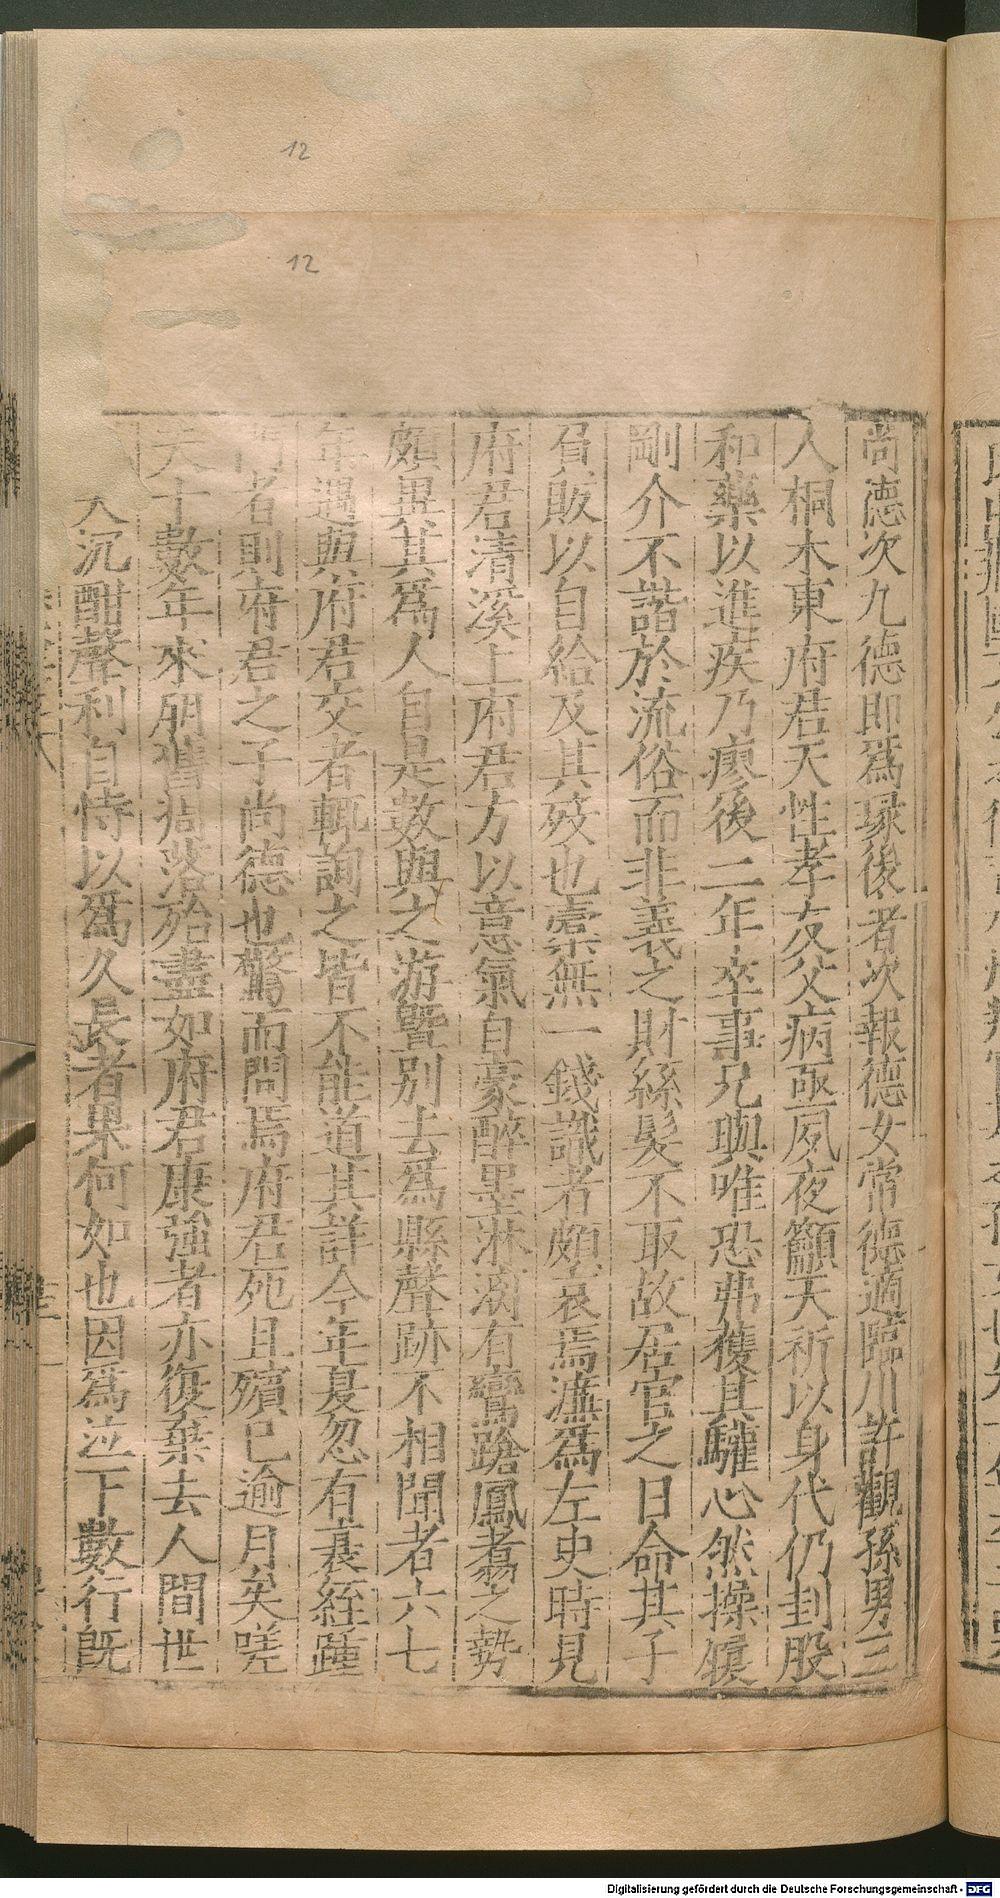 12
12
尚德次九德即爲琭後者次報德女常德適臨川許觀孫男三
人桐木東府君天性孝友父病亟夙夜籲天祈以身代仍刲股
和藥以進疾乃瘳後二年卒事兄與唯恐弗獲其驩心然操履
剛介不諧於流俗而非義之財絲髮不取故居官之日命其子
負販以自給及其歿也橐無一錢識者頗哀焉濂爲左史時見
府君清溪上府君方以意氣自豪醉墨淋漓有鸞蹌鳳翥之勢
頗異其爲人自是數與之游暨別去爲縣聲跡不相聞者六七
年遇與府君交者輒詢之皆不能道其詳今年夏忽有衰絰踵
門者則府君之子尚德也驚而問焉府君死且殯已逾月矣嗟
夫十數年來朋舊凋落殆盡如府君康強者亦復棄去人間世
人沉酣聲利自恃以爲久長者果何如也因爲泣下數行既
Digitalisierung gefördert durch die Deutsche Forschungsgemeinschaft - DFG